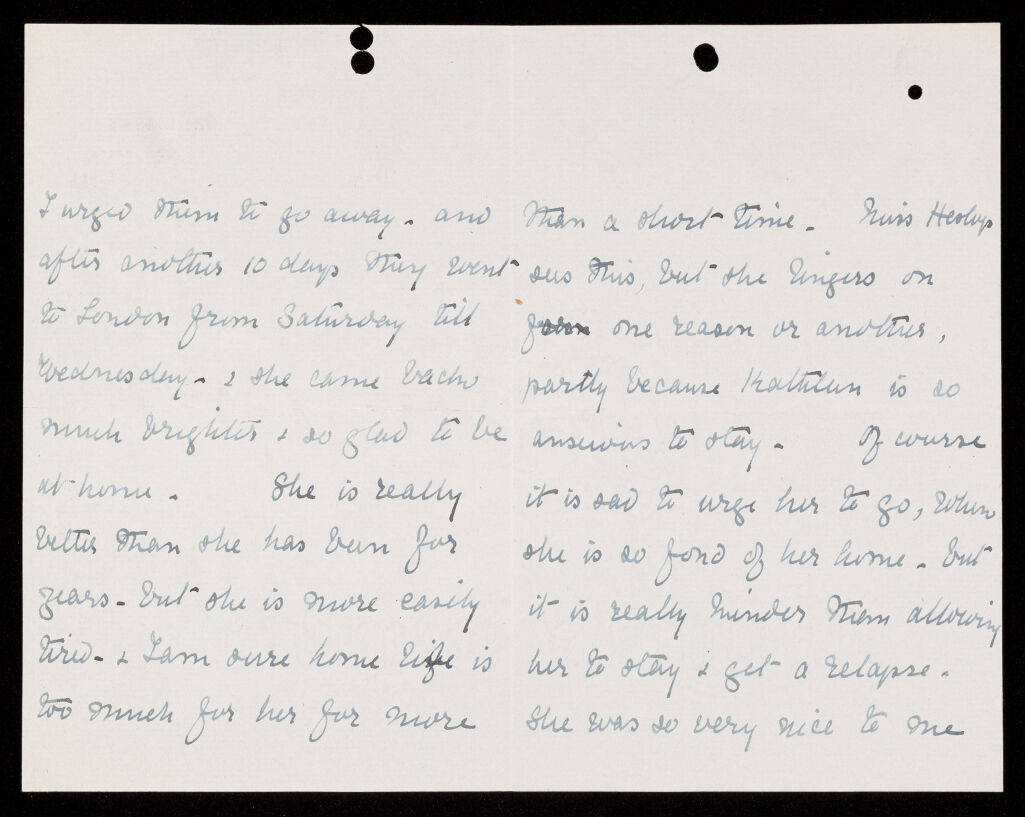 I urged them to go away - and
after another 10 days they went
to London from Saturday till
Wednesday - & she came back
much brighter & so glad to be
at home. She is really
better than she has been for
years - but she is more easily
tired - & I am sure home life is
too much for her for more
than a short time. Miss Heslop
sees this, but she lingers on
one reason or another,
partly because Kathleen is so
anxious to stay. Of course
it is sad to urge her to go, when
she is so fond of her home - but
it is really kinder than allowing
her to stay & get a relapse.
She was so very nice to me